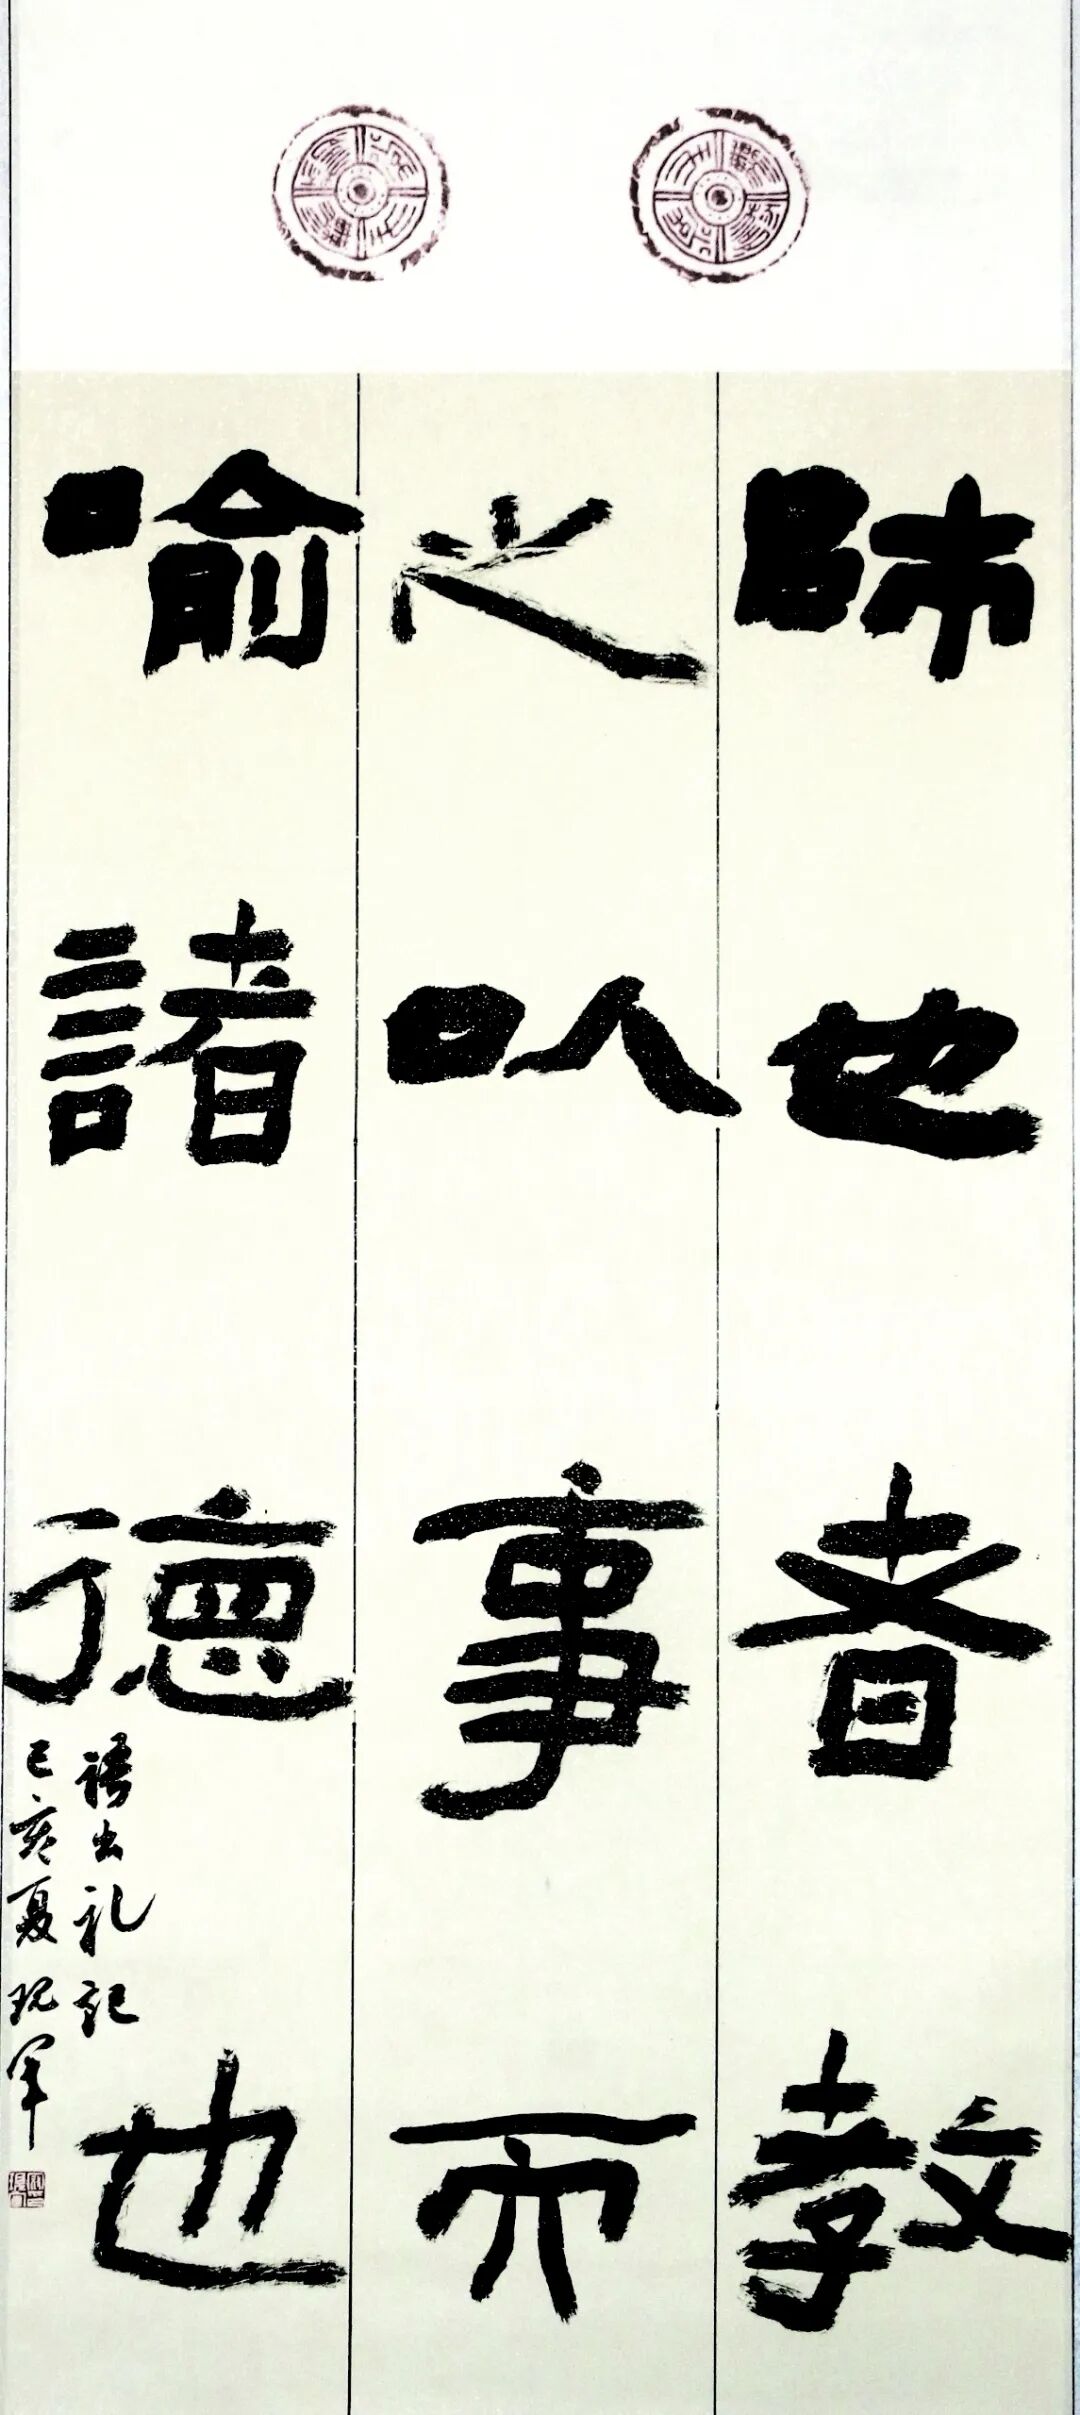 師也者教
之以事而
喻諸德也
語出礼記
己亥夏現軍